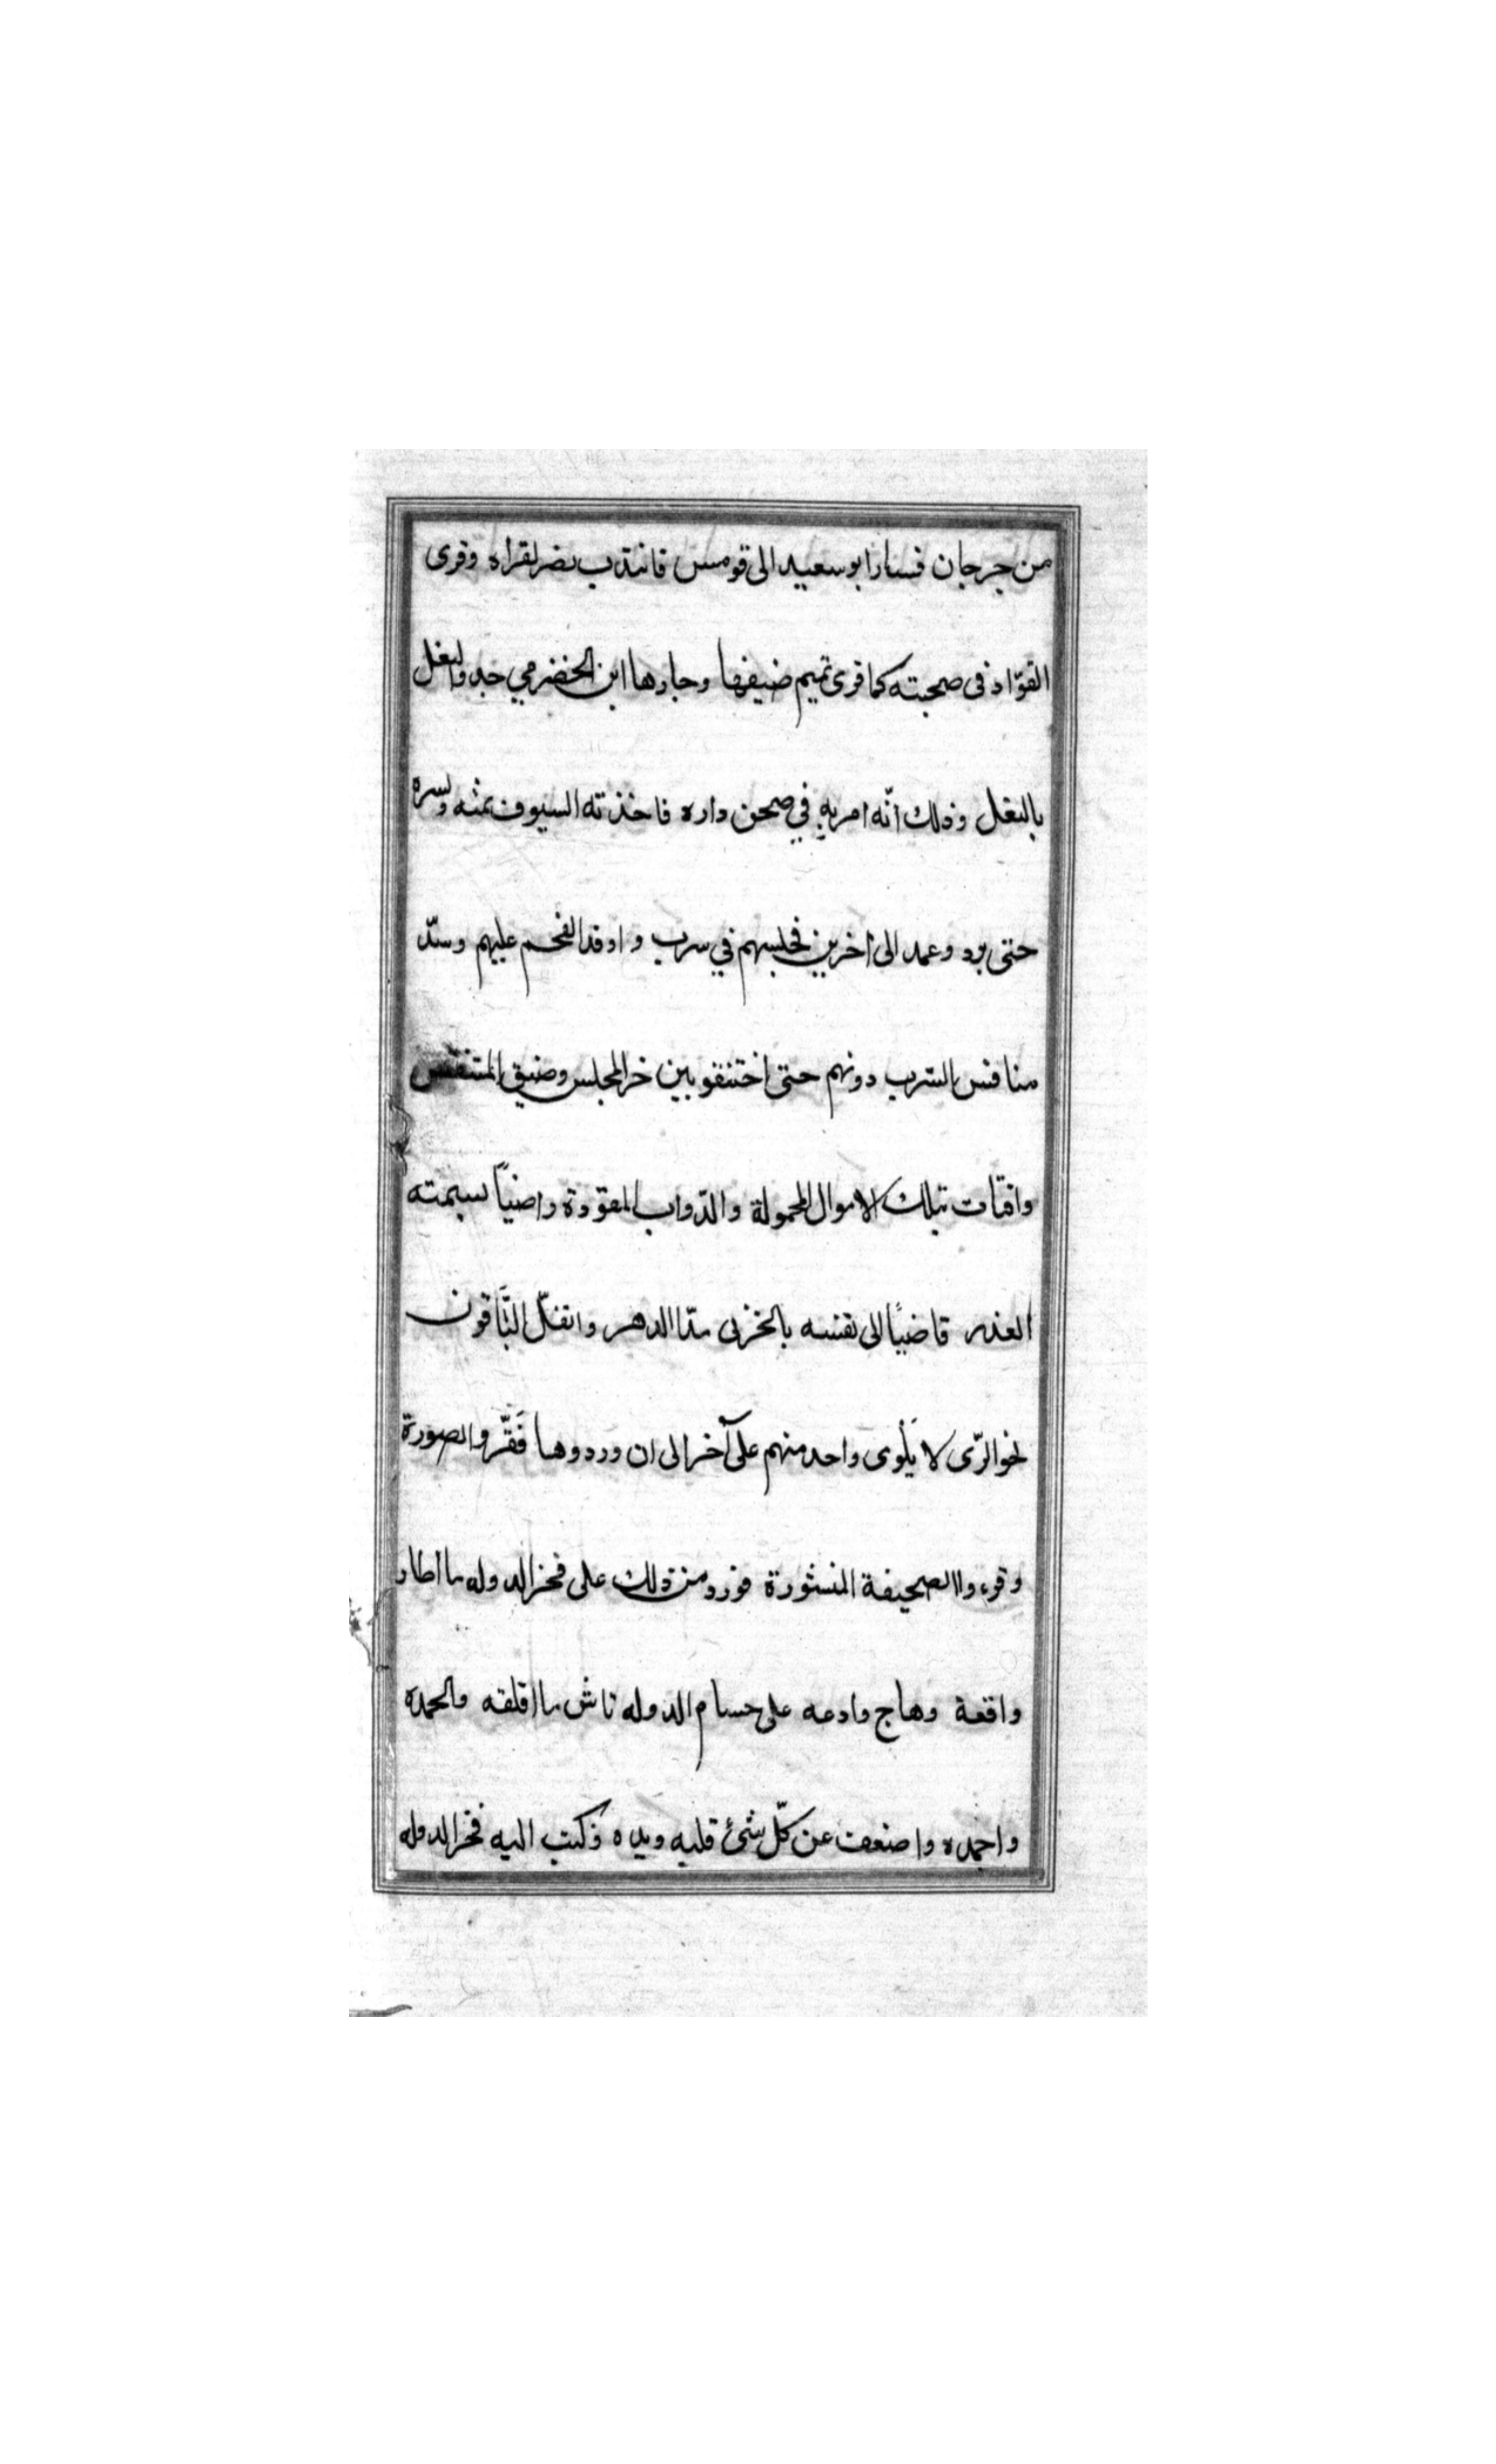 من جرجان فسار ابو سعيد الى قومس فانتدب نصر لقراه وقرى
القوّاد فى صحبته كما قرى تميم ضيفها وجارها ابن الحضرمي حد والنعل
بالنعل وذلك انّه امر به في صحن داره فاخذته السيوف
حتى برد وعمد الى آخرين فحبسهم في سرب واوقد الفحم عليهم وسدّ
منافس السّرب دونهم حتى اختنقو بين حر المجلس وضيق المتنفّس
وافتات بتلك الاموال المحمولة والدّواب المقوّدة راضياً بسمته
الغدر قاضيًا الى نفسه بالخزى مدا الدهر وانفلّ البَاقون
نحو الرّى لا يَلْوى واحد منهم على آخر الى ان وردوها فَقَرّروا الصورة
وقرءوا الصحيفة المنشورة فورد من ذلك على فخر الدوله ما اطار
واقعة وهاج وادعه على حسام الدوله تاش ما اقلقه والحمده
واجمده واضعف عن كلّ شئ قلبه ويده فكتب اليه فخر الدوله